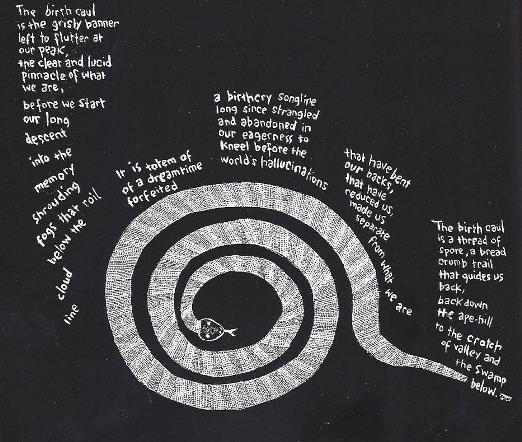 The birth caul
is the grisly banner
left to flutter at
our peak,
the clear and lucid
pinnacle of what
we are,
before we start
our long
descent
into the
memory
shrouding
fogs that roil
below the
cloud
line
It is totem of
of a dreamtime
forfeited
a birthcry songline
long since strangled
and abandoned in
our eagerness to
kneel before the
world's hallucinations
that have bent
our backs,
that have
reduced us,
made us
separate
from what
we are
The birth caul
is a thread of
spore, a bread
crumb trail
that guides us
back,
back down
the ape-hill
to the crotch
of valley and
the swamp
below.